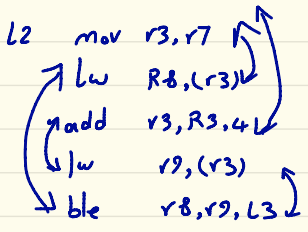 L2 mov r3, r7
lw R8, (r3)
add r3, R3, 4
lw r9, (r3)
ble r8, r9, L3